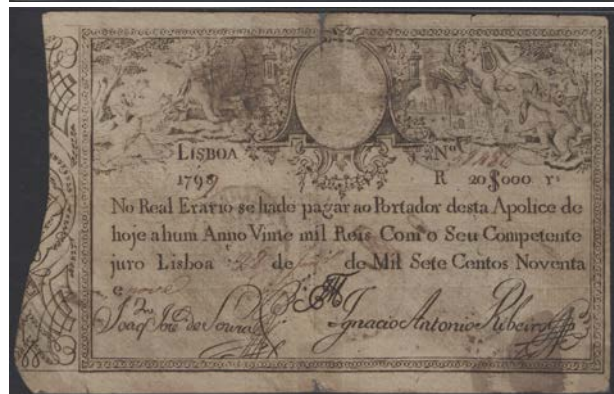 LISBOA Nº
1799 R 20$000 rˢ
No Real Erario se hade pagar ao Portador desta Apolice de
hoje a hum Anno Vinte mil Reis Com o Seu Competente
juro Lisboa 28 de de Mil Sete Centos Noventa
e nove
Joaqᵐ Joze de Souza Ignacio Antonio Ribeiro